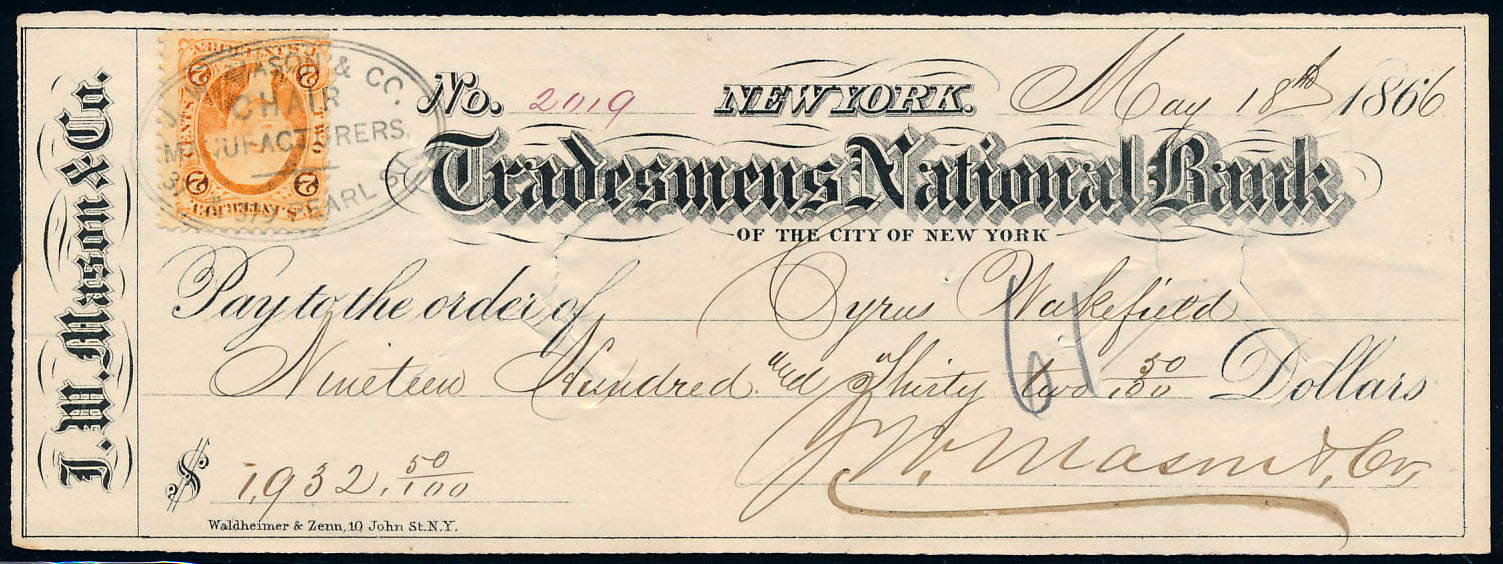 J. W. Mason & Co.
U.S. INTER. REV.
TWO CENTS
2 2 2 2
MASON & CO.
CHAIR
MANUFACTURERS.
PEARL St.
No. 2019 NEW YORK. May 18th 1866
Tradesmens National Bank
OF THE CITY OF NEW YORK
Pay to the order of Cyrus Wakefield
Nineteen Hundred and Thirty two 50/100 Dollars
61
$ 1,932.50/100
J. W. Mason & Co.
Waldheimer & Zenn, 10 John St. N.Y.